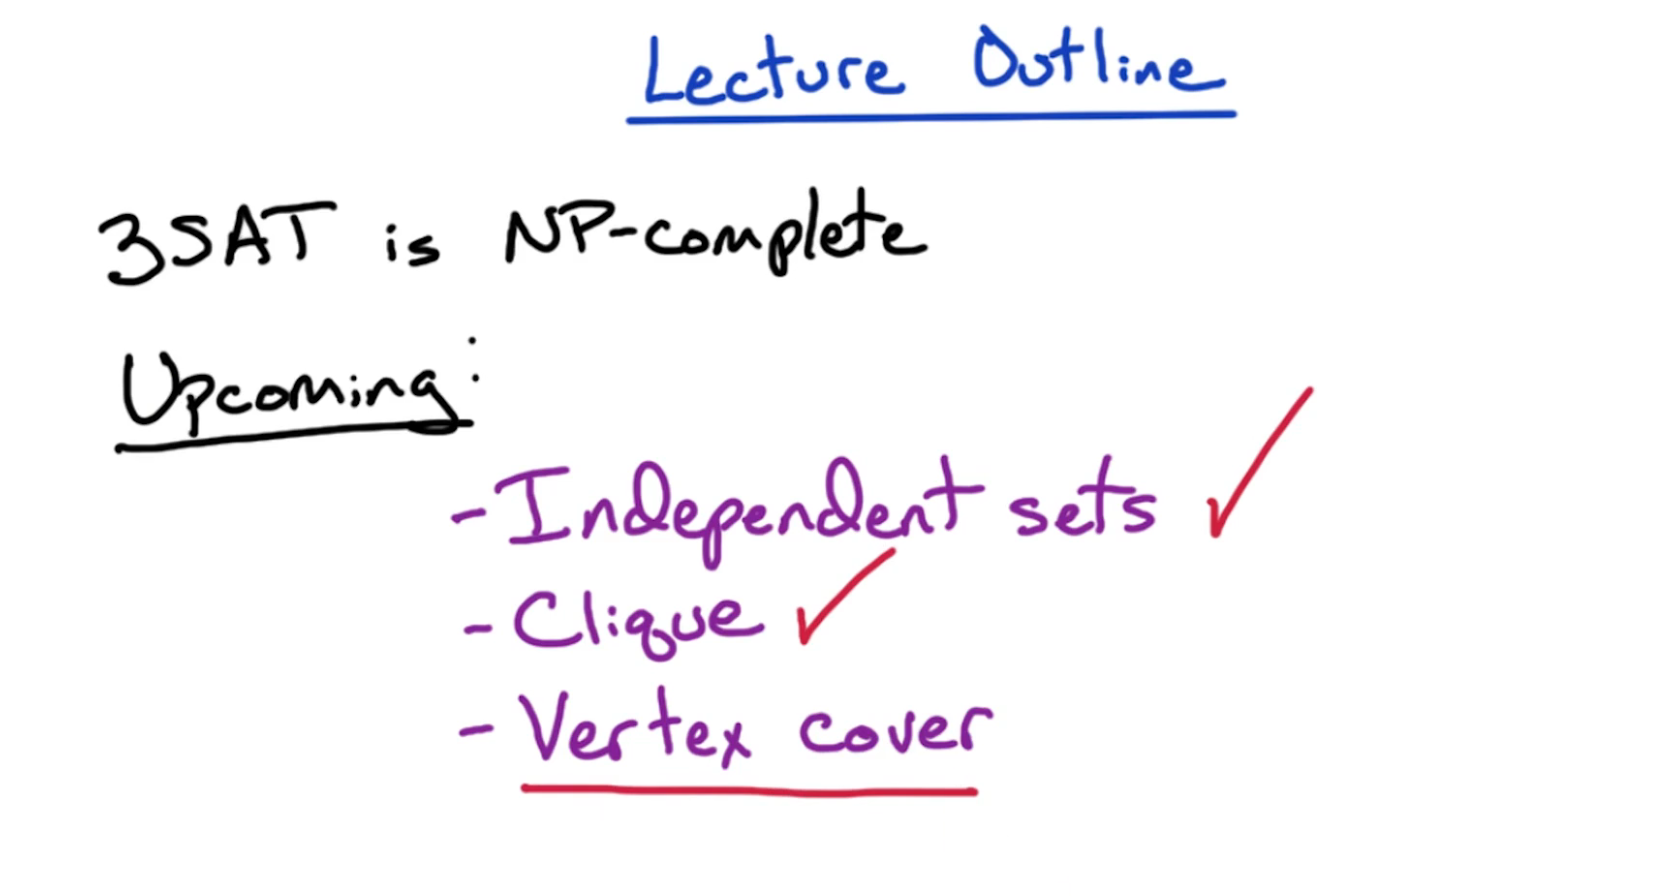 Lecture Outline
3SAT is NP-complete
Upcoming:
- Independent sets ✓
- Clique ✓
- Vertex cover